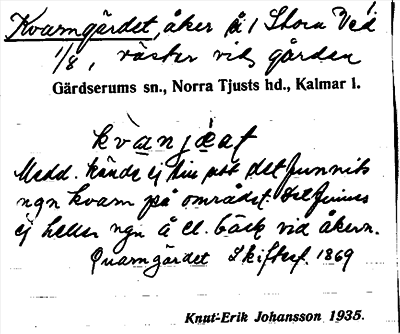 Kvarngärdet, åker å 1 Stora Ved
1/8, väster vid gården
Gärdserums sn., Norra Tjusts hd., Kalmar l.
kvanjæt
Medd. kände ej till att det funnits
ngn kvarn på området. Det finnes
ej heller ngn å el. bäck vid åkern.
Quarngärdet Skiftesf. 1869
Knut-Erik Johansson 1935.